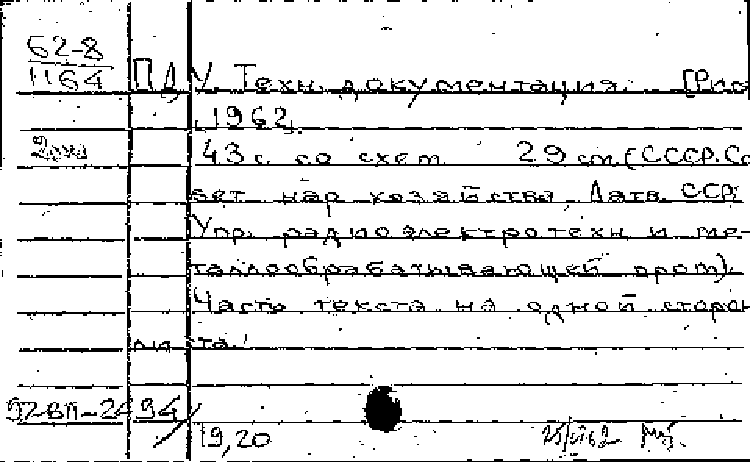 62-8
1164
ПДУ. Техн. документация. [Риг
, 1962].
2экз
43 с. со схем. 29 см. (СССР. Со
вет нар. хозяйства Латв. ССР.
Упр. радиоэлектротехн. и ме-
таллообрабатывающей пром).
Часть текста на одной сторон
листа.
92-ВП-2494
19,20